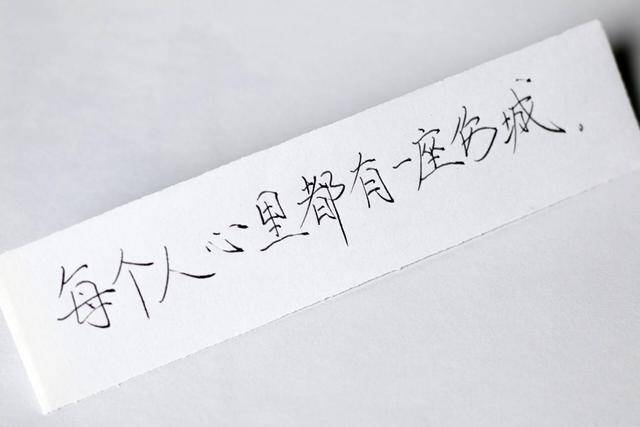 每个人心里都有一座伤城。